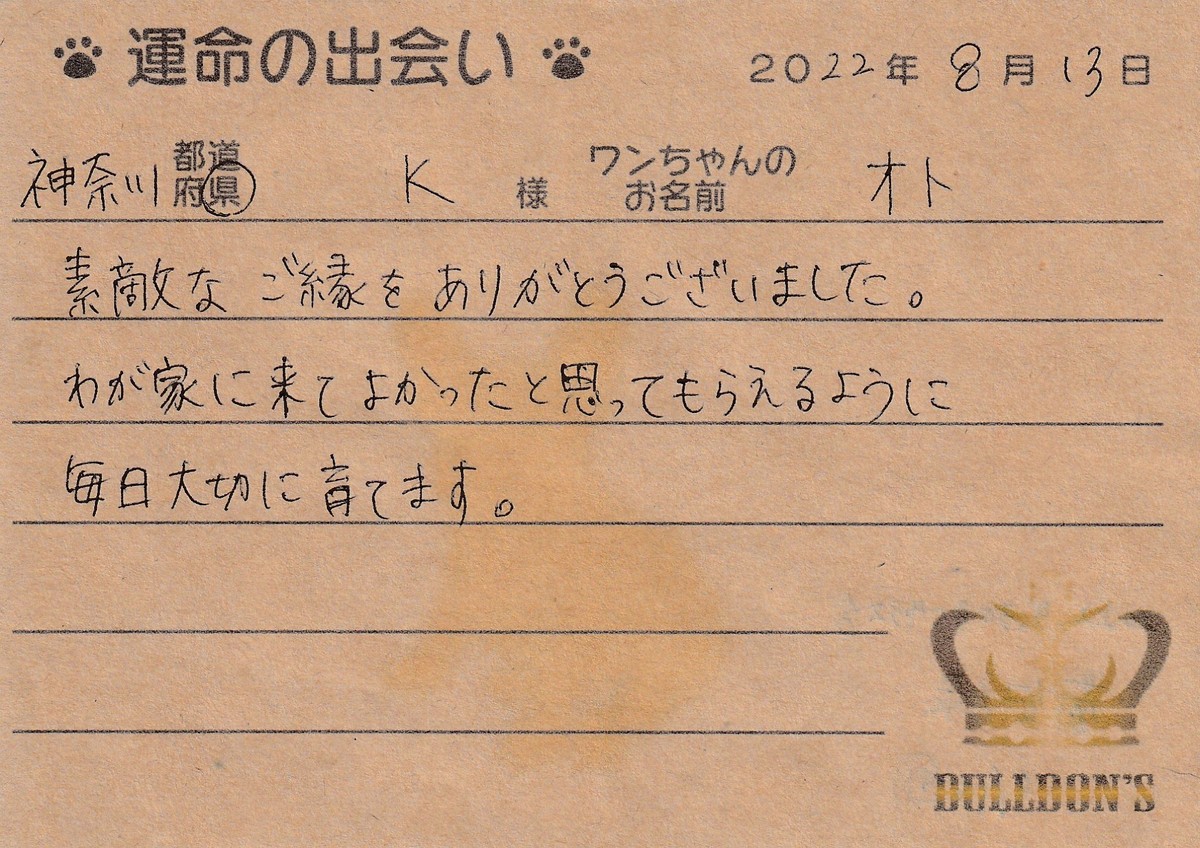 運命の出会い 2022年8月13日
神奈川 都道府県 K 様 ワンちゃんのお名前 オト
素敵なご縁をありがとうございました。
わが家に来てよかったと思ってもらえるように
毎日大切に育てます。
BULLDON'S